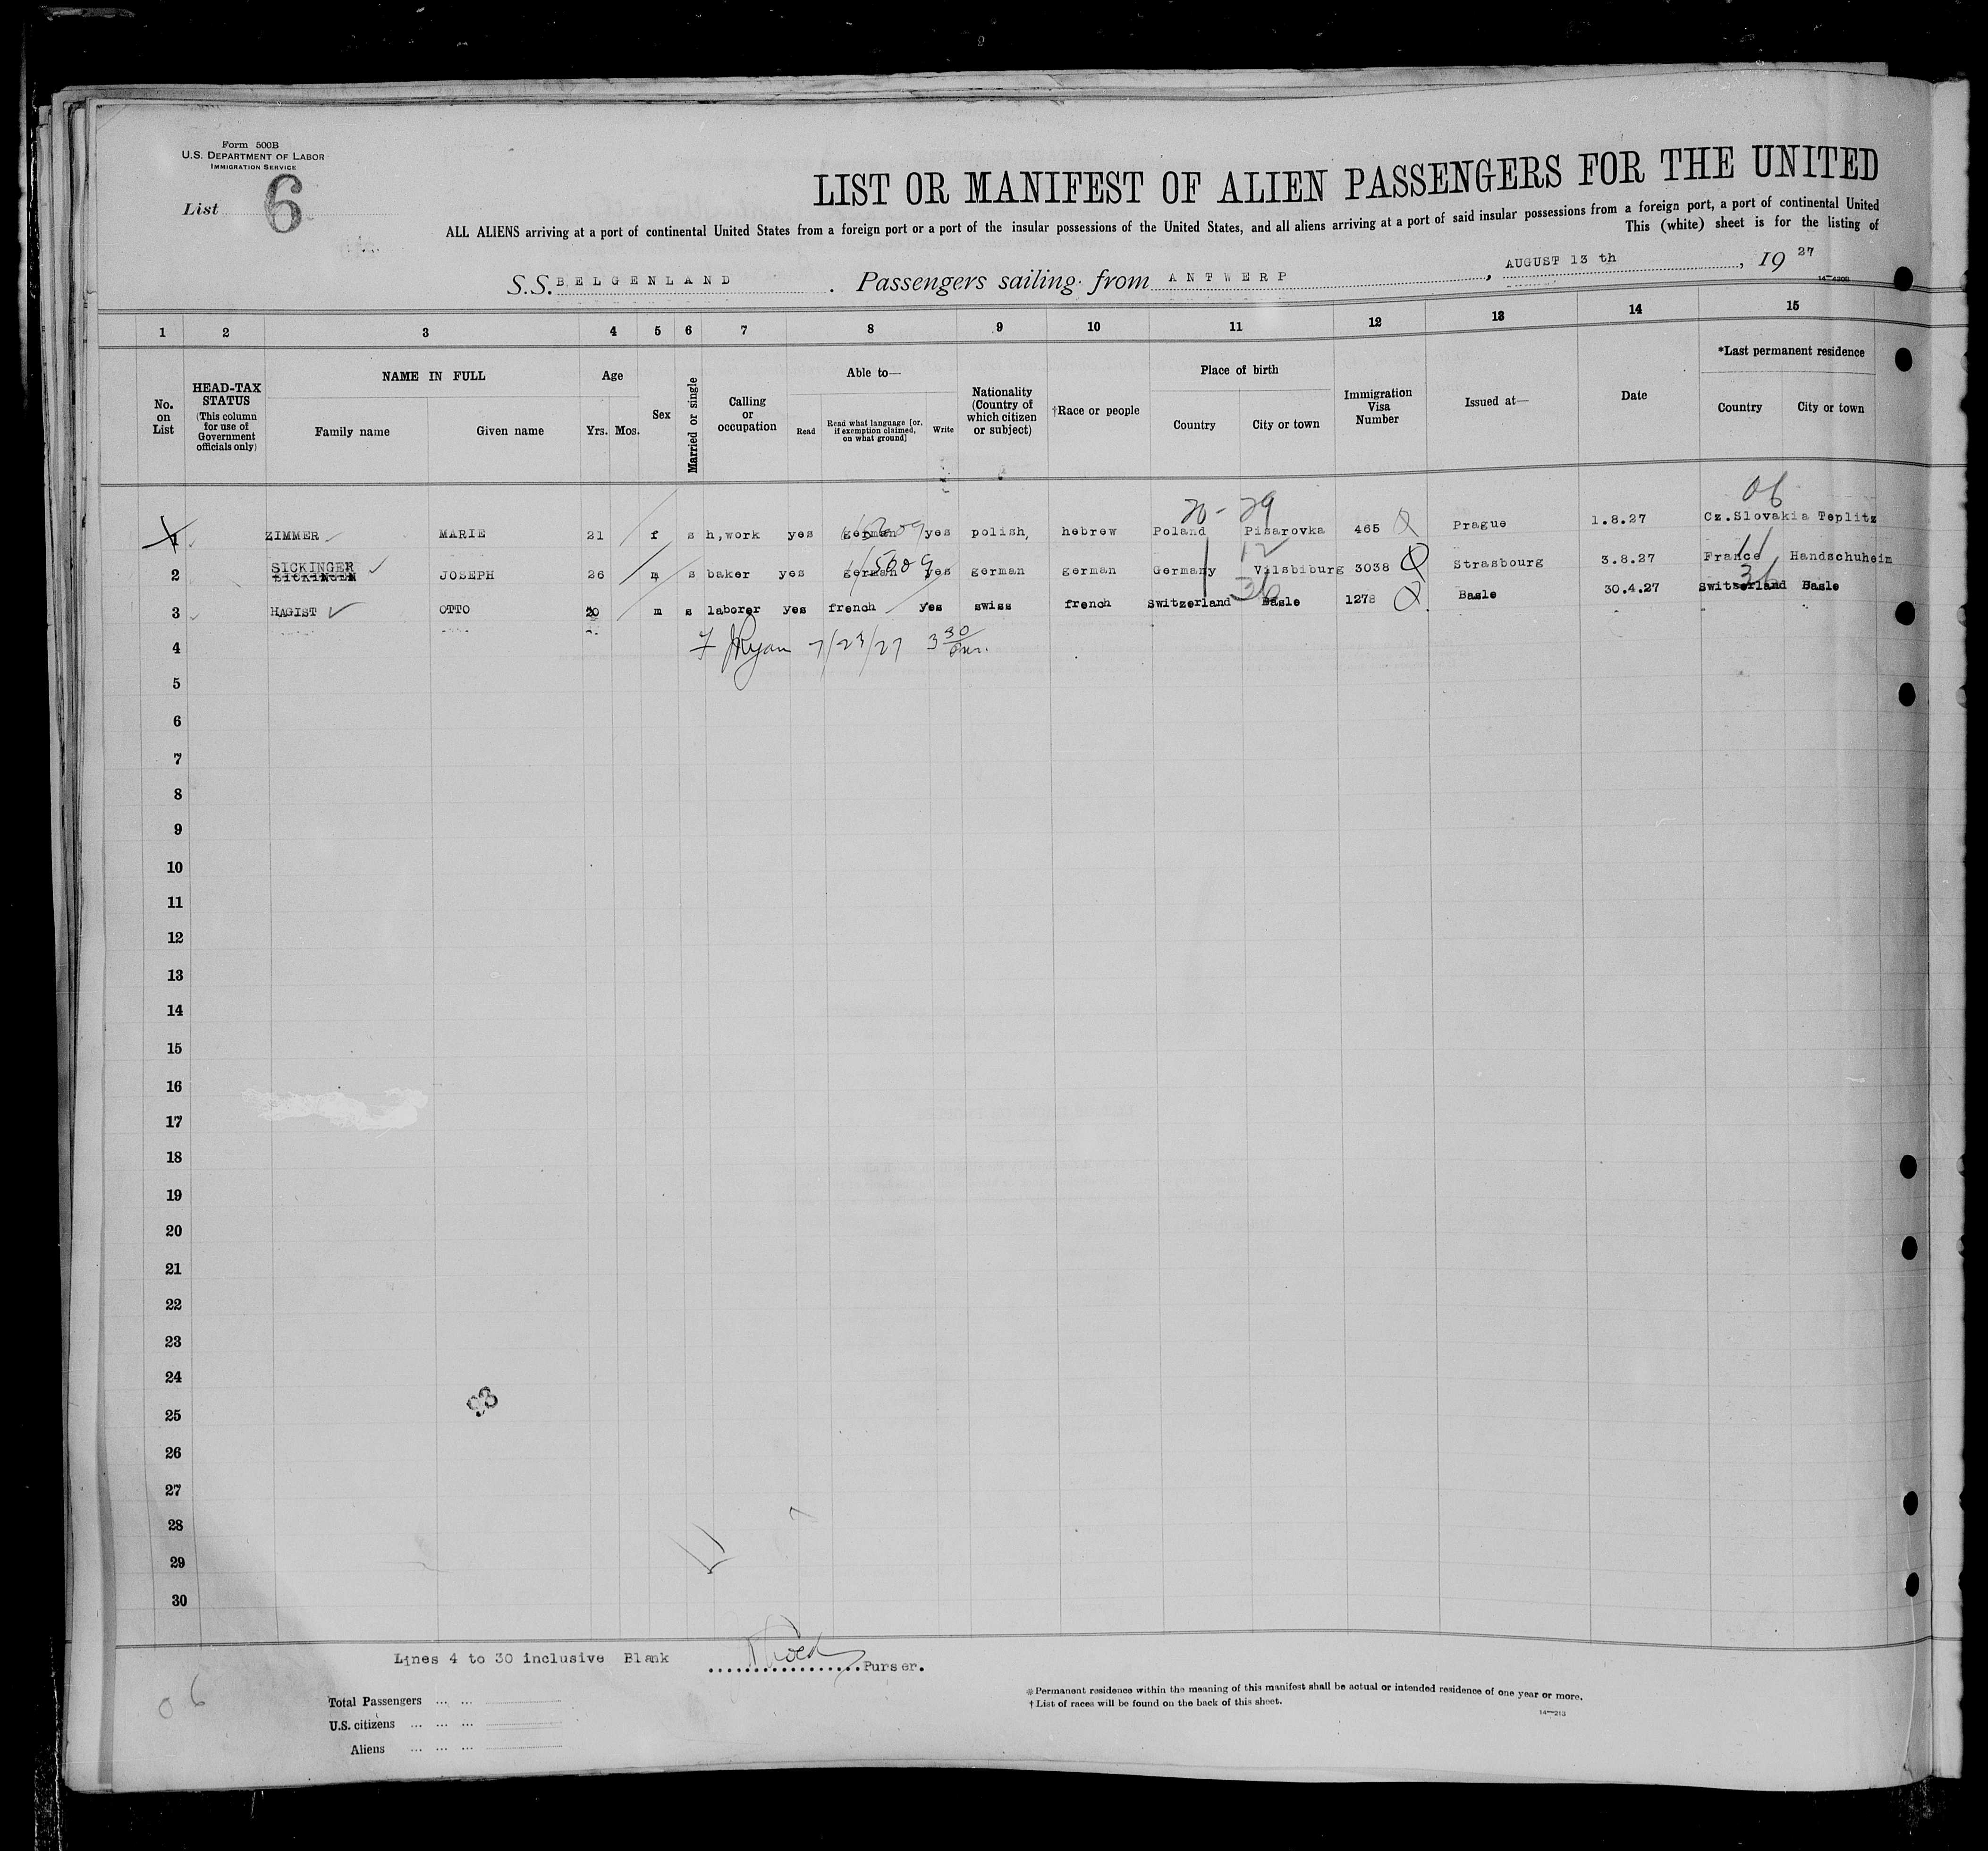 Form 500B
U.S. DEPARTMENT OF LABOR
IMMIGRATION SERVICE
List 6
LIST OR MANIFEST OF ALIEN PASSENGERS FOR THE UNITED
ALL ALIENS arriving at a port of continental United States from a foreign port or a port of the insular possessions of the United States, and all aliens arriving at a port of said insular possessions from a foreign port, a port of continental United
This (white) sheet is for the listing of
S.S. BELGENLAND . Passengers sailing from ANTWERP , AUGUST 13 th , 19 27
14—4208
1 2 3 4 5 6 7 8 9 10 11 12 13 14 15
No. on List
HEAD-TAX STATUS (This column for use of Government officials only)
NAME IN FULL
Family name Given name
Age
Yrs. Mos.
Sex
Married or single
Calling or occupation
Able to—
Read
Read what language [or, if exemption claimed, on what ground]
Write
Nationality (Country of which citizen or subject)
†Race or people
Place of birth
Country City or town
Immigration Visa Number
Issued at—
Date
*Last permanent residence
Country City or town
20-29 06
1 ZIMMER MARIE 21 f s h,work yes german yes polish, hebrew Poland Pisarovka 465 Prague 1.8.27 Cz.Slovakia Teplitz
12 11
SICKINGER
2 JOSEPH 26 m s baker yes german yes german german Germany Vilsbiburg 3038 Strasbourg 3.8.27 France Handschuheim
36 36
3 HAGIST OTTO 20 m s laborer yes french yes swiss french Switzerland Basle 1278 Basle 30.4.27 Switzerland Basle
4 F J Ryan 7/23/27 3 30
5
6
7
8
9
10
11
12
13
14
15
16
17
18
19
20
21
22
23
24
25
26
27
28
29
30
Lines 4 to 30 inclusive Blank ..................Purser.
06
Total Passengers ... ...
U.S. citizens ... ... ...
Aliens ... ... ...
*Permanent residence within the meaning of this manifest shall be actual or intended residence of one year or more.
†List of races will be found on the back of this sheet.
14—213